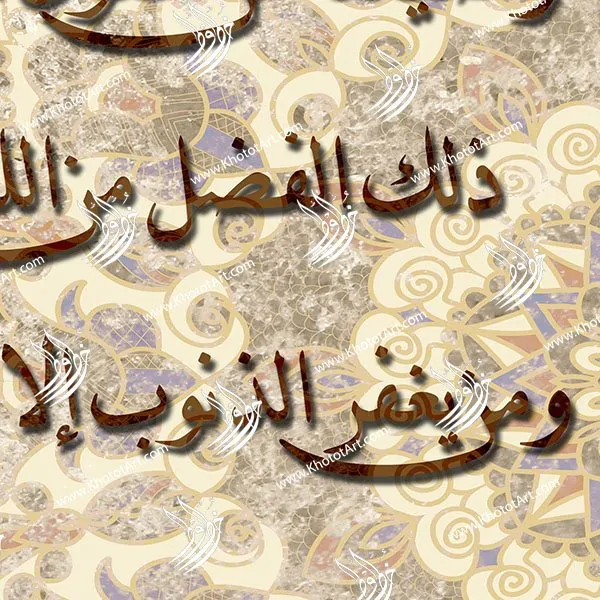 ذلك الفضل من
ومن يغفر الذنوب إلا
www.KhototArt.com